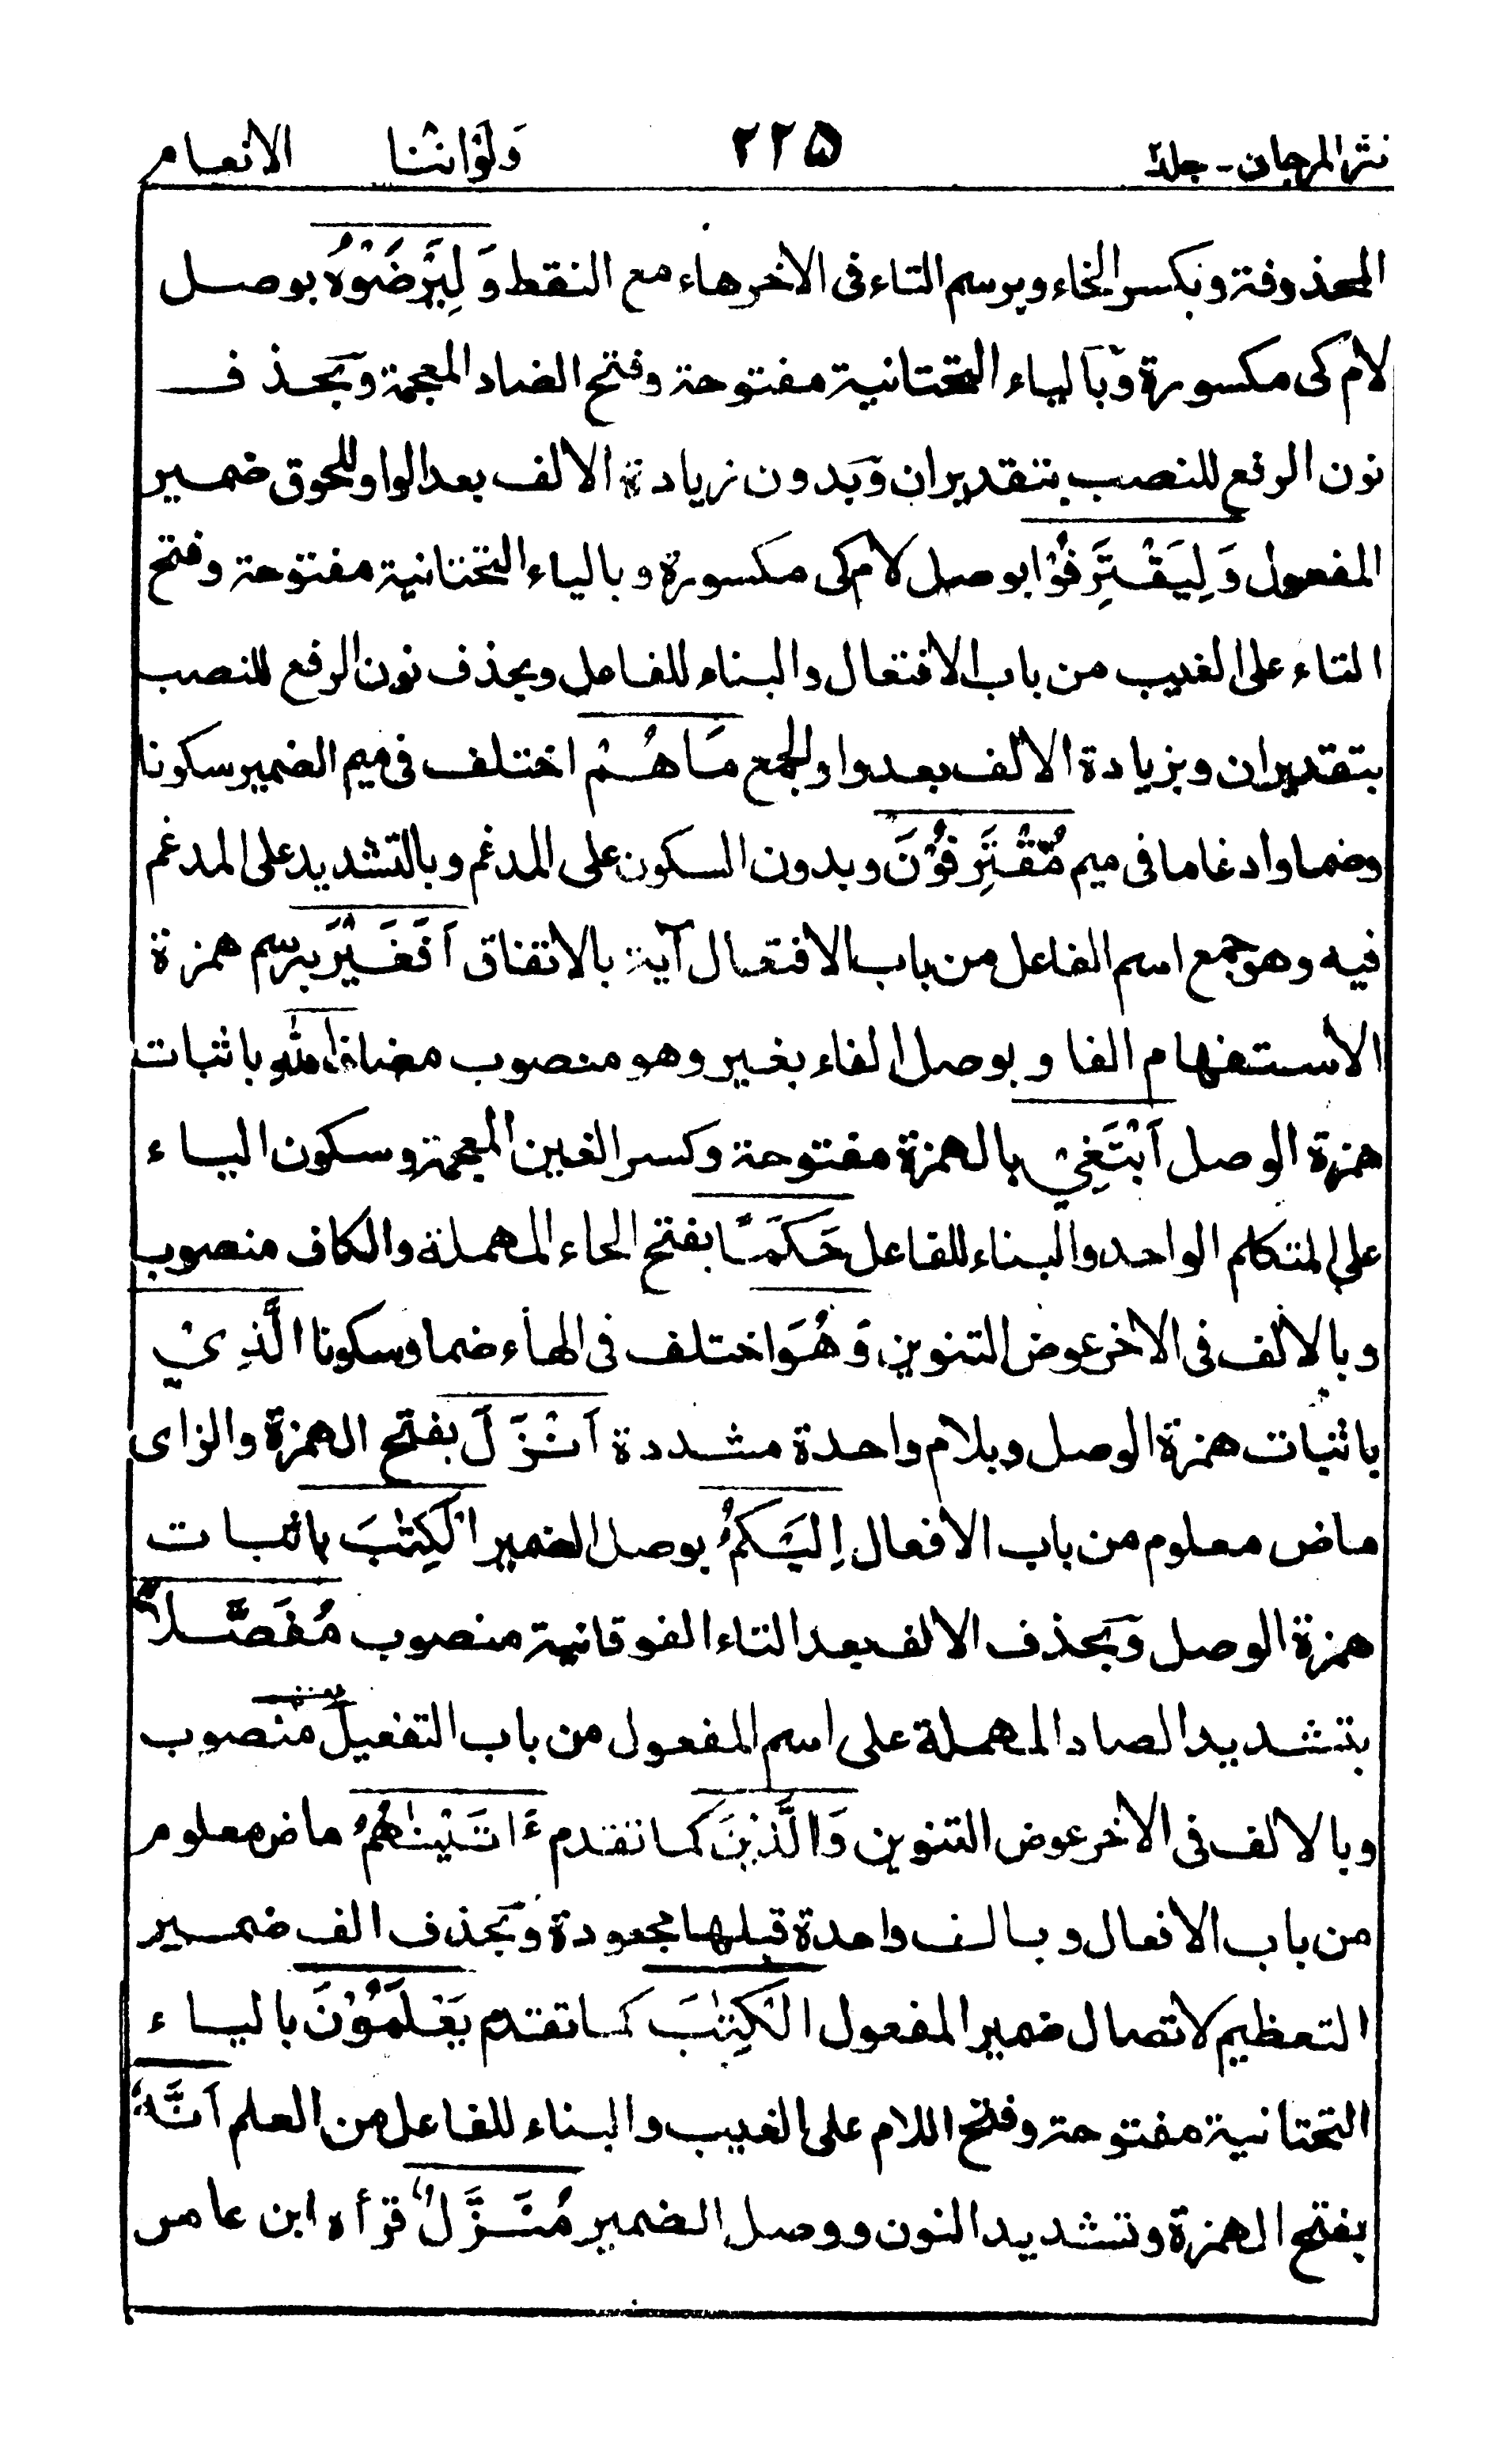 نثر المرجان - جلد٢ ٢٢٥ وَلَوْاَنَّنَا الانعام
المحذوفة وبكسر الخاء وبرسم التاء فى الاخر هاء مع النقط وَلِيَرْضَوْهُ بوصل
لام كى مكسورة وبالياء التحتانية مفتوحة وفتح الضاد المعجمة وبحذف
نون الرفع للنصب بتقدير ان وبدون زيادة الالف بعد الواو للحوق ضمير
المفعول وَلِيَقْتَرِفُوْا بوصل لام كى مكسورة وبالياء التحتانية مفتوحة وفتح
التاء على الغيب من باب الافتعال والبناء للفاعل وبحذف نون الرفع للنصب
بتقدير ان وبزيادة الالف بعد واو الجمع مَا هُمْ اختلف فى ميم الضمير سكونا
وضما وادغاما فى ميم مُّقْتَرِفُوْنَ وبدون السكون على المدغم وبالتشديد على المدغم
فيه وهو جمع اسم الفاعل من باب الافتعال آية بالاتفاق اَفَغَيْرَ برسم همزة
الاستفهام الفا وبوصل الفاء بغير وهو منصوب مضاف اللهِ باثبات
همزة الوصل اَبْتَغِيْ بالهمزة مفتوحة وكسر الغين المعجمة وسكون الياء
على المتكلم الواحد والبناء للفاعل حَكَمًا بفتح الحاء المهملة والكاف منصوب
وبالالف فى الاخر عوض التنوين وَهُوَ اختلف فى الهاء ضما وسكونا الَّذِيْ
باثبات همزة الوصل وبلام واحدة مشددة اَنْزَلَ بفتح الهمزة والزاى
ماض معلوم من باب الافعال اِلَيْكُمُ بوصل الضمير الْكِتٰبَ باثبات
همزة الوصل وبحذف الالف بعد التاء الفوقانية منصوب مُفَصَّلًا
بتشديد الصاد المهملة على اسم المفعول من باب التفعيل منصوب
وبالالف فى الاخر عوض التنوين وَالَّذِيْنَ كما تقدم ءَاتَيْنٰهُمُ ماض معلوم
من باب الافعال وبالف واحدة قبلها مجعودة وبحذف الف ضمير
التعظيم لاتصال ضمير المفعول الْكِتٰبَ كما تقدم يَعْلَمُوْنَ بالياء
التحتانية مفتوحة وفتح اللام على الغيب والبناء للفاعل من العلم اَنَّهٗ
بفتح الهمزة وتشديد النون ووصل الضمير مُنَزَّلٌ قرأه ابن عامر